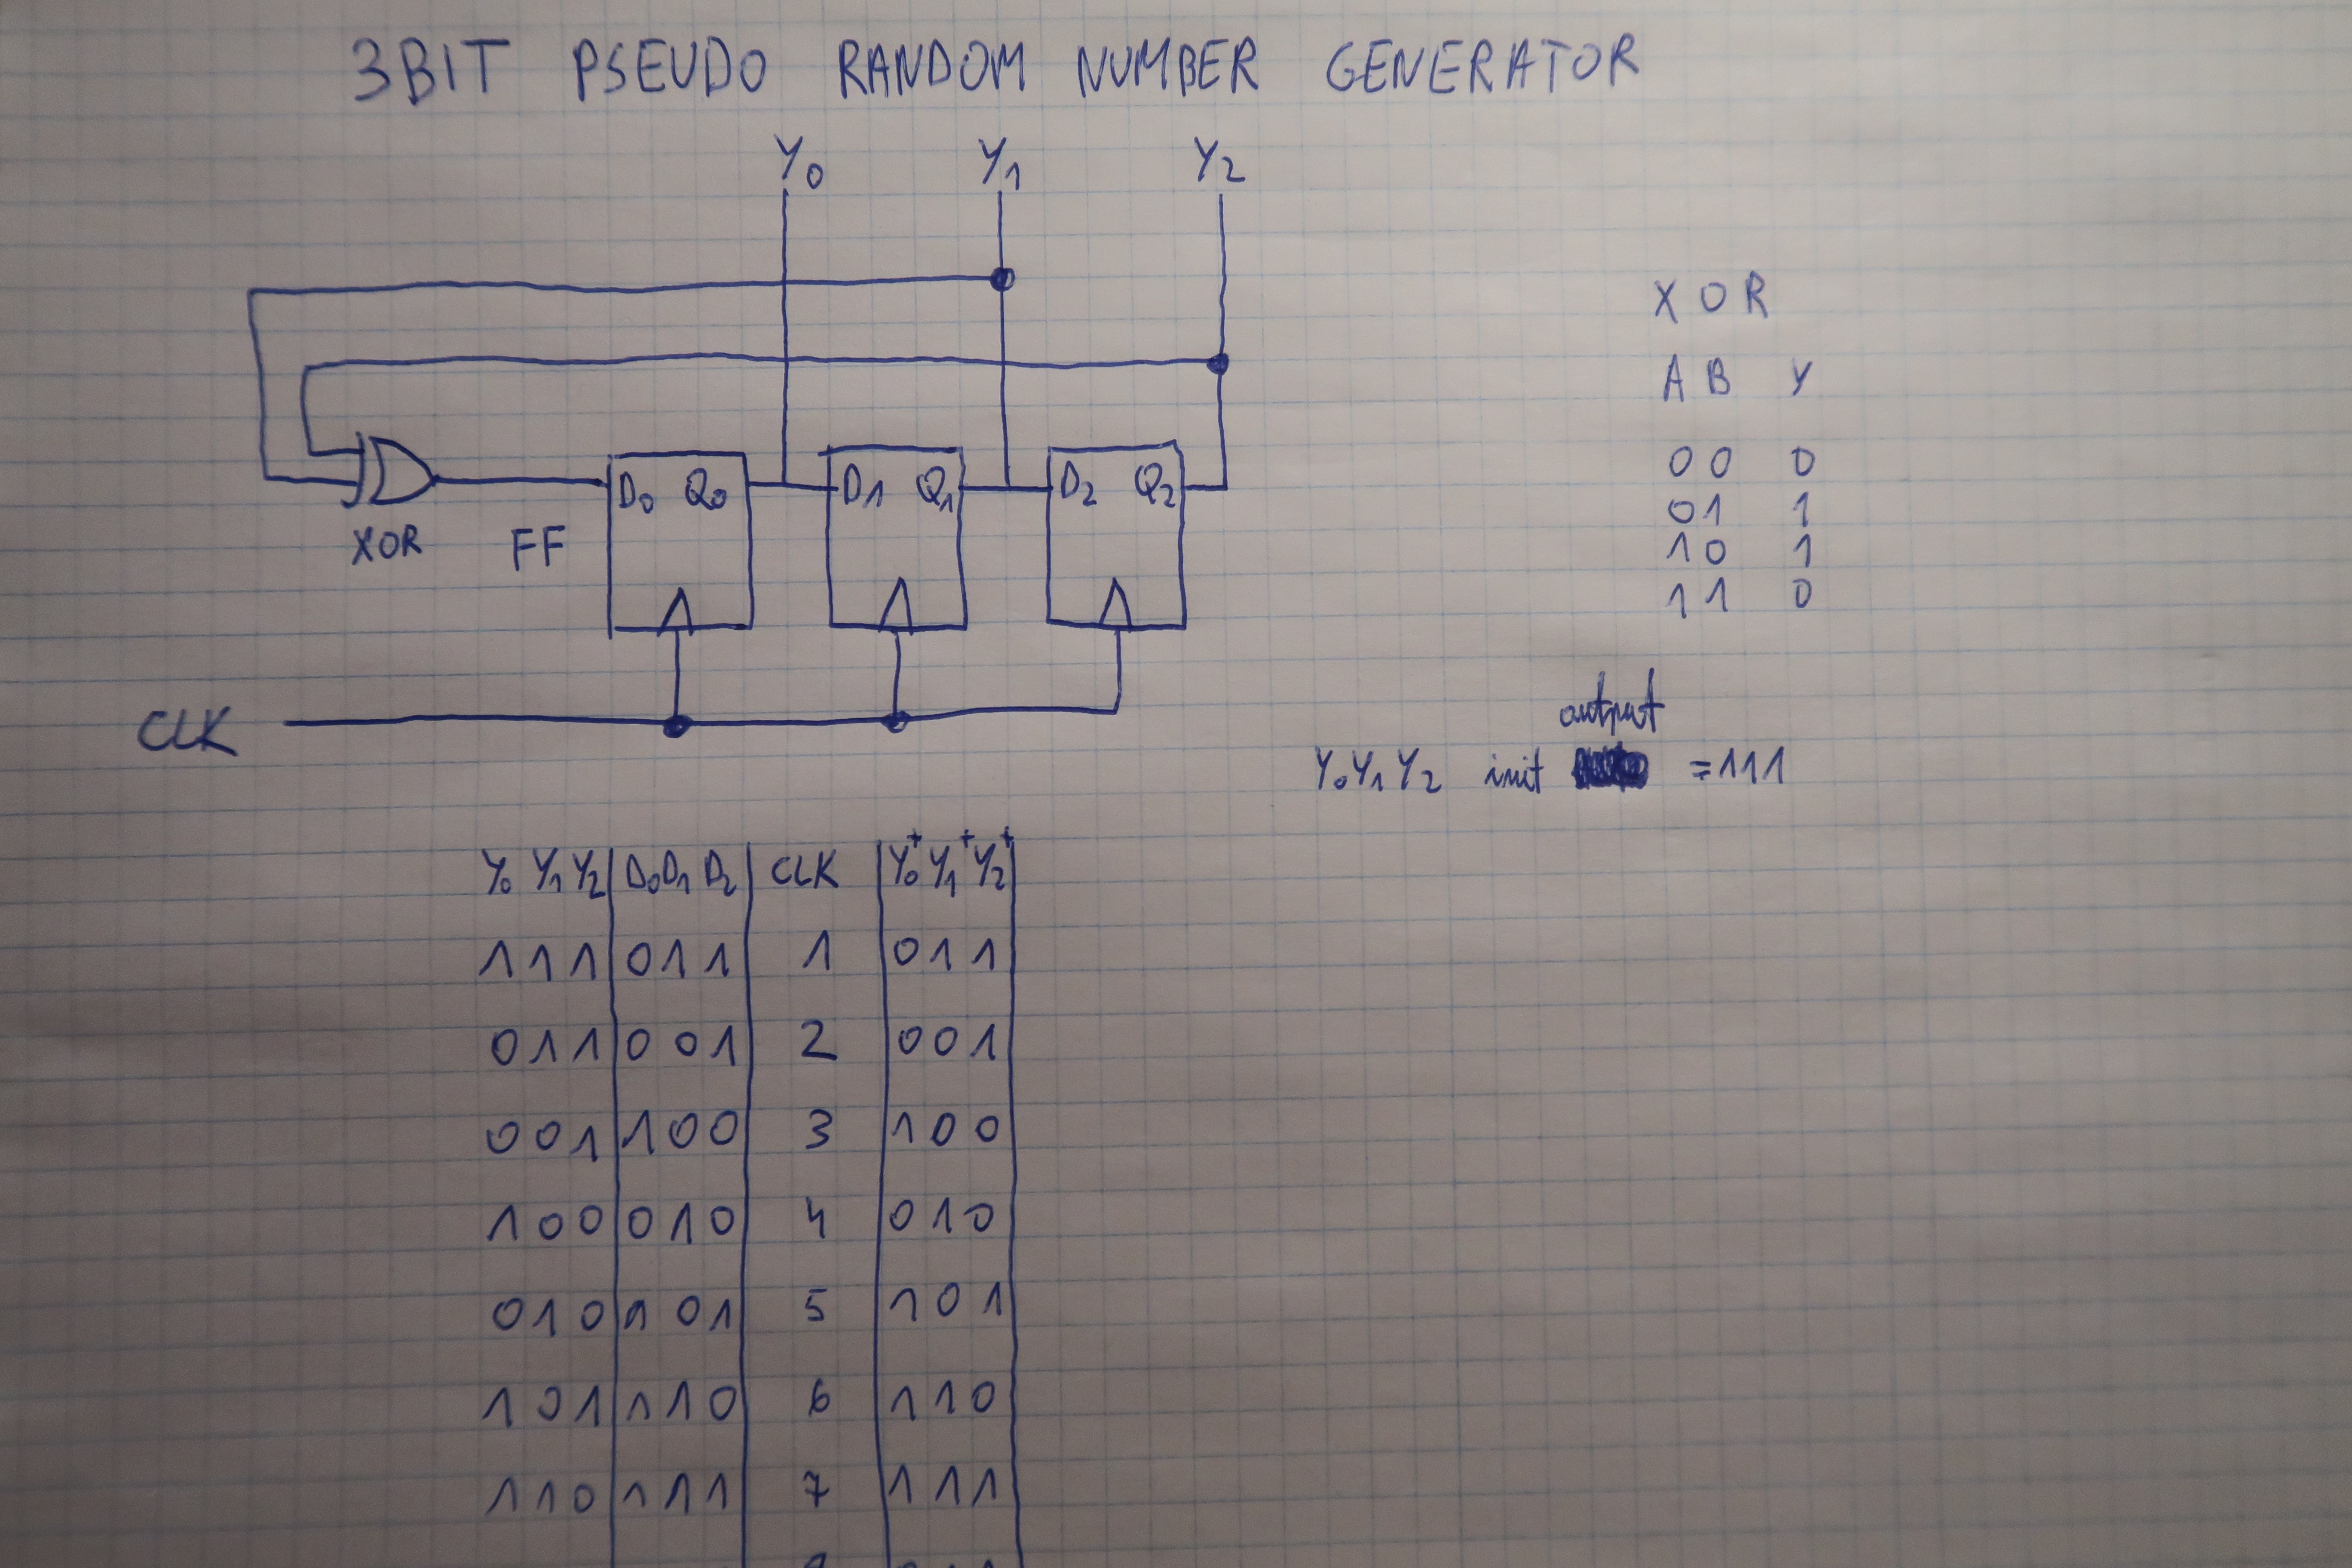 3BIT PSEUDO RANDOM NUMBER GENERATOR
Y0 Y1 Y2
XOR
A B Y
0 0 0
0 1 1
1 0 1
1 1 0
D0 Q0 D1 Q1 D2 Q2
XOR FF
CLK
output
Y0Y1Y2 init =111
Y0 Y1 Y2 D0 D1 D2 CLK Y0+ Y1+ Y2+
111 011 1 011
011 001 2 001
001 100 3 100
100 010 4 010
010 101 5 101
101 110 6 110
110 111 7 111